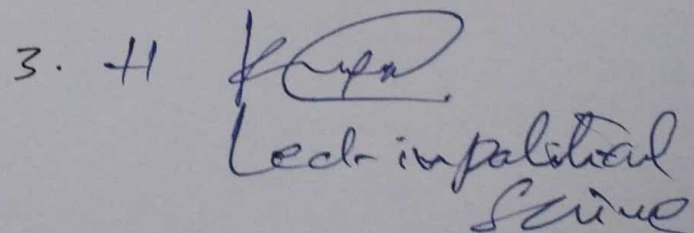 3. H
Lect in political
Science